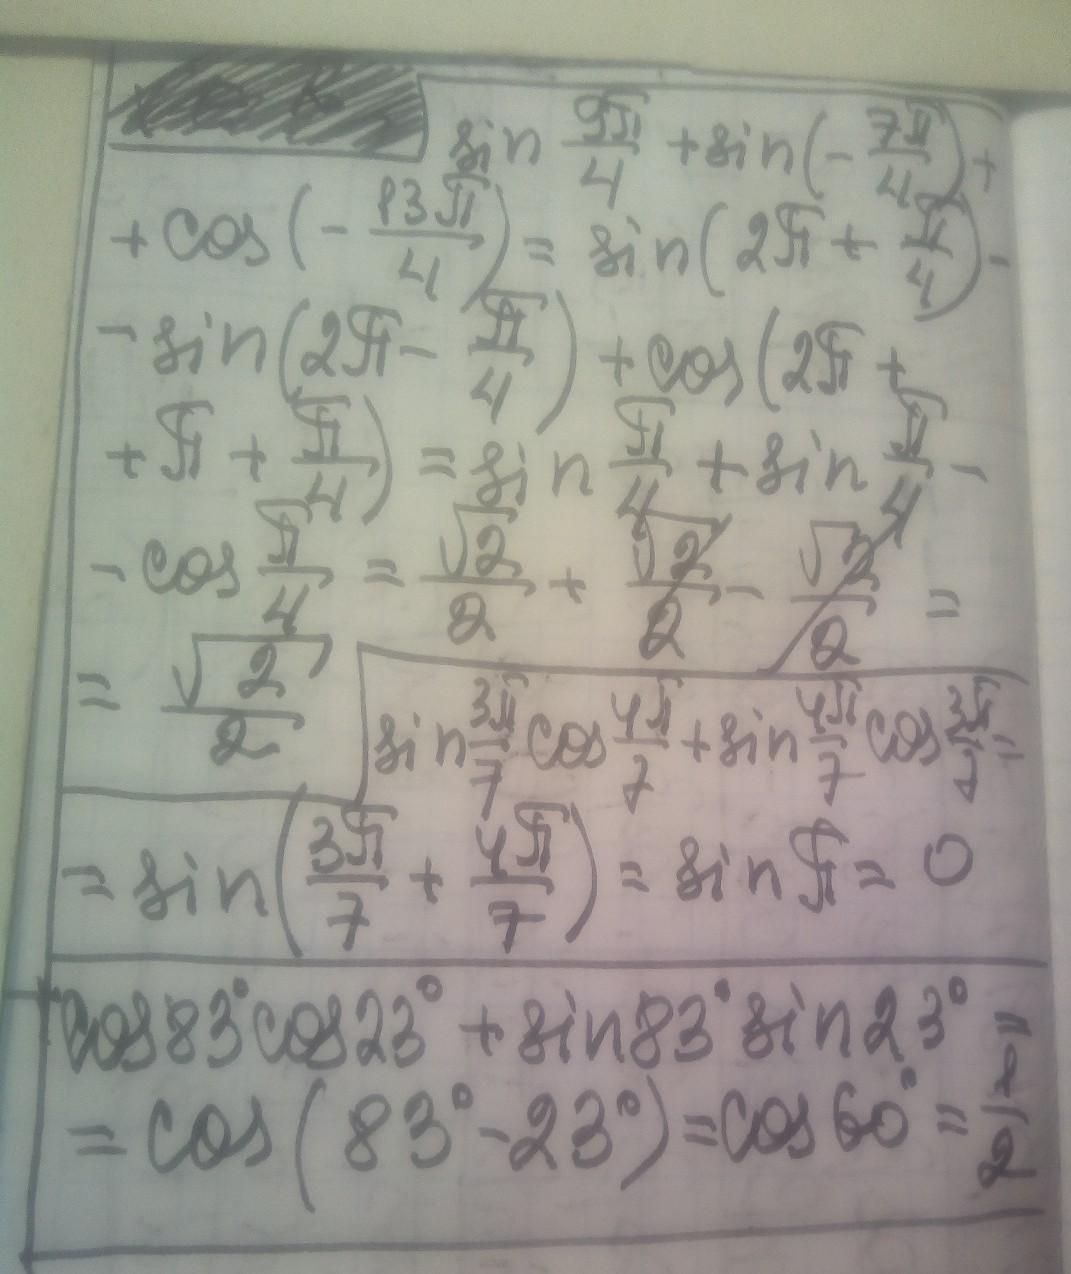 sin 9π/4 + sin(- 7π/4) +
+ cos(- 13π/4) = sin(2π + π/4) -
- sin(2π - π/4) + cos(2π +
+ π + π/4) = sin π/4 + sin π/4 -
- cos π/4 = √2/2 + √2/2 - √2/2 =
= √2/2
sin 3π/7 cos 4π/7 + sin 4π/7 cos 3π/7 =
= sin(3π/7 + 4π/7) = sin π = 0
cos83° cos23° + sin83° sin23° =
= cos(83° - 23°) = cos60° = 1/2